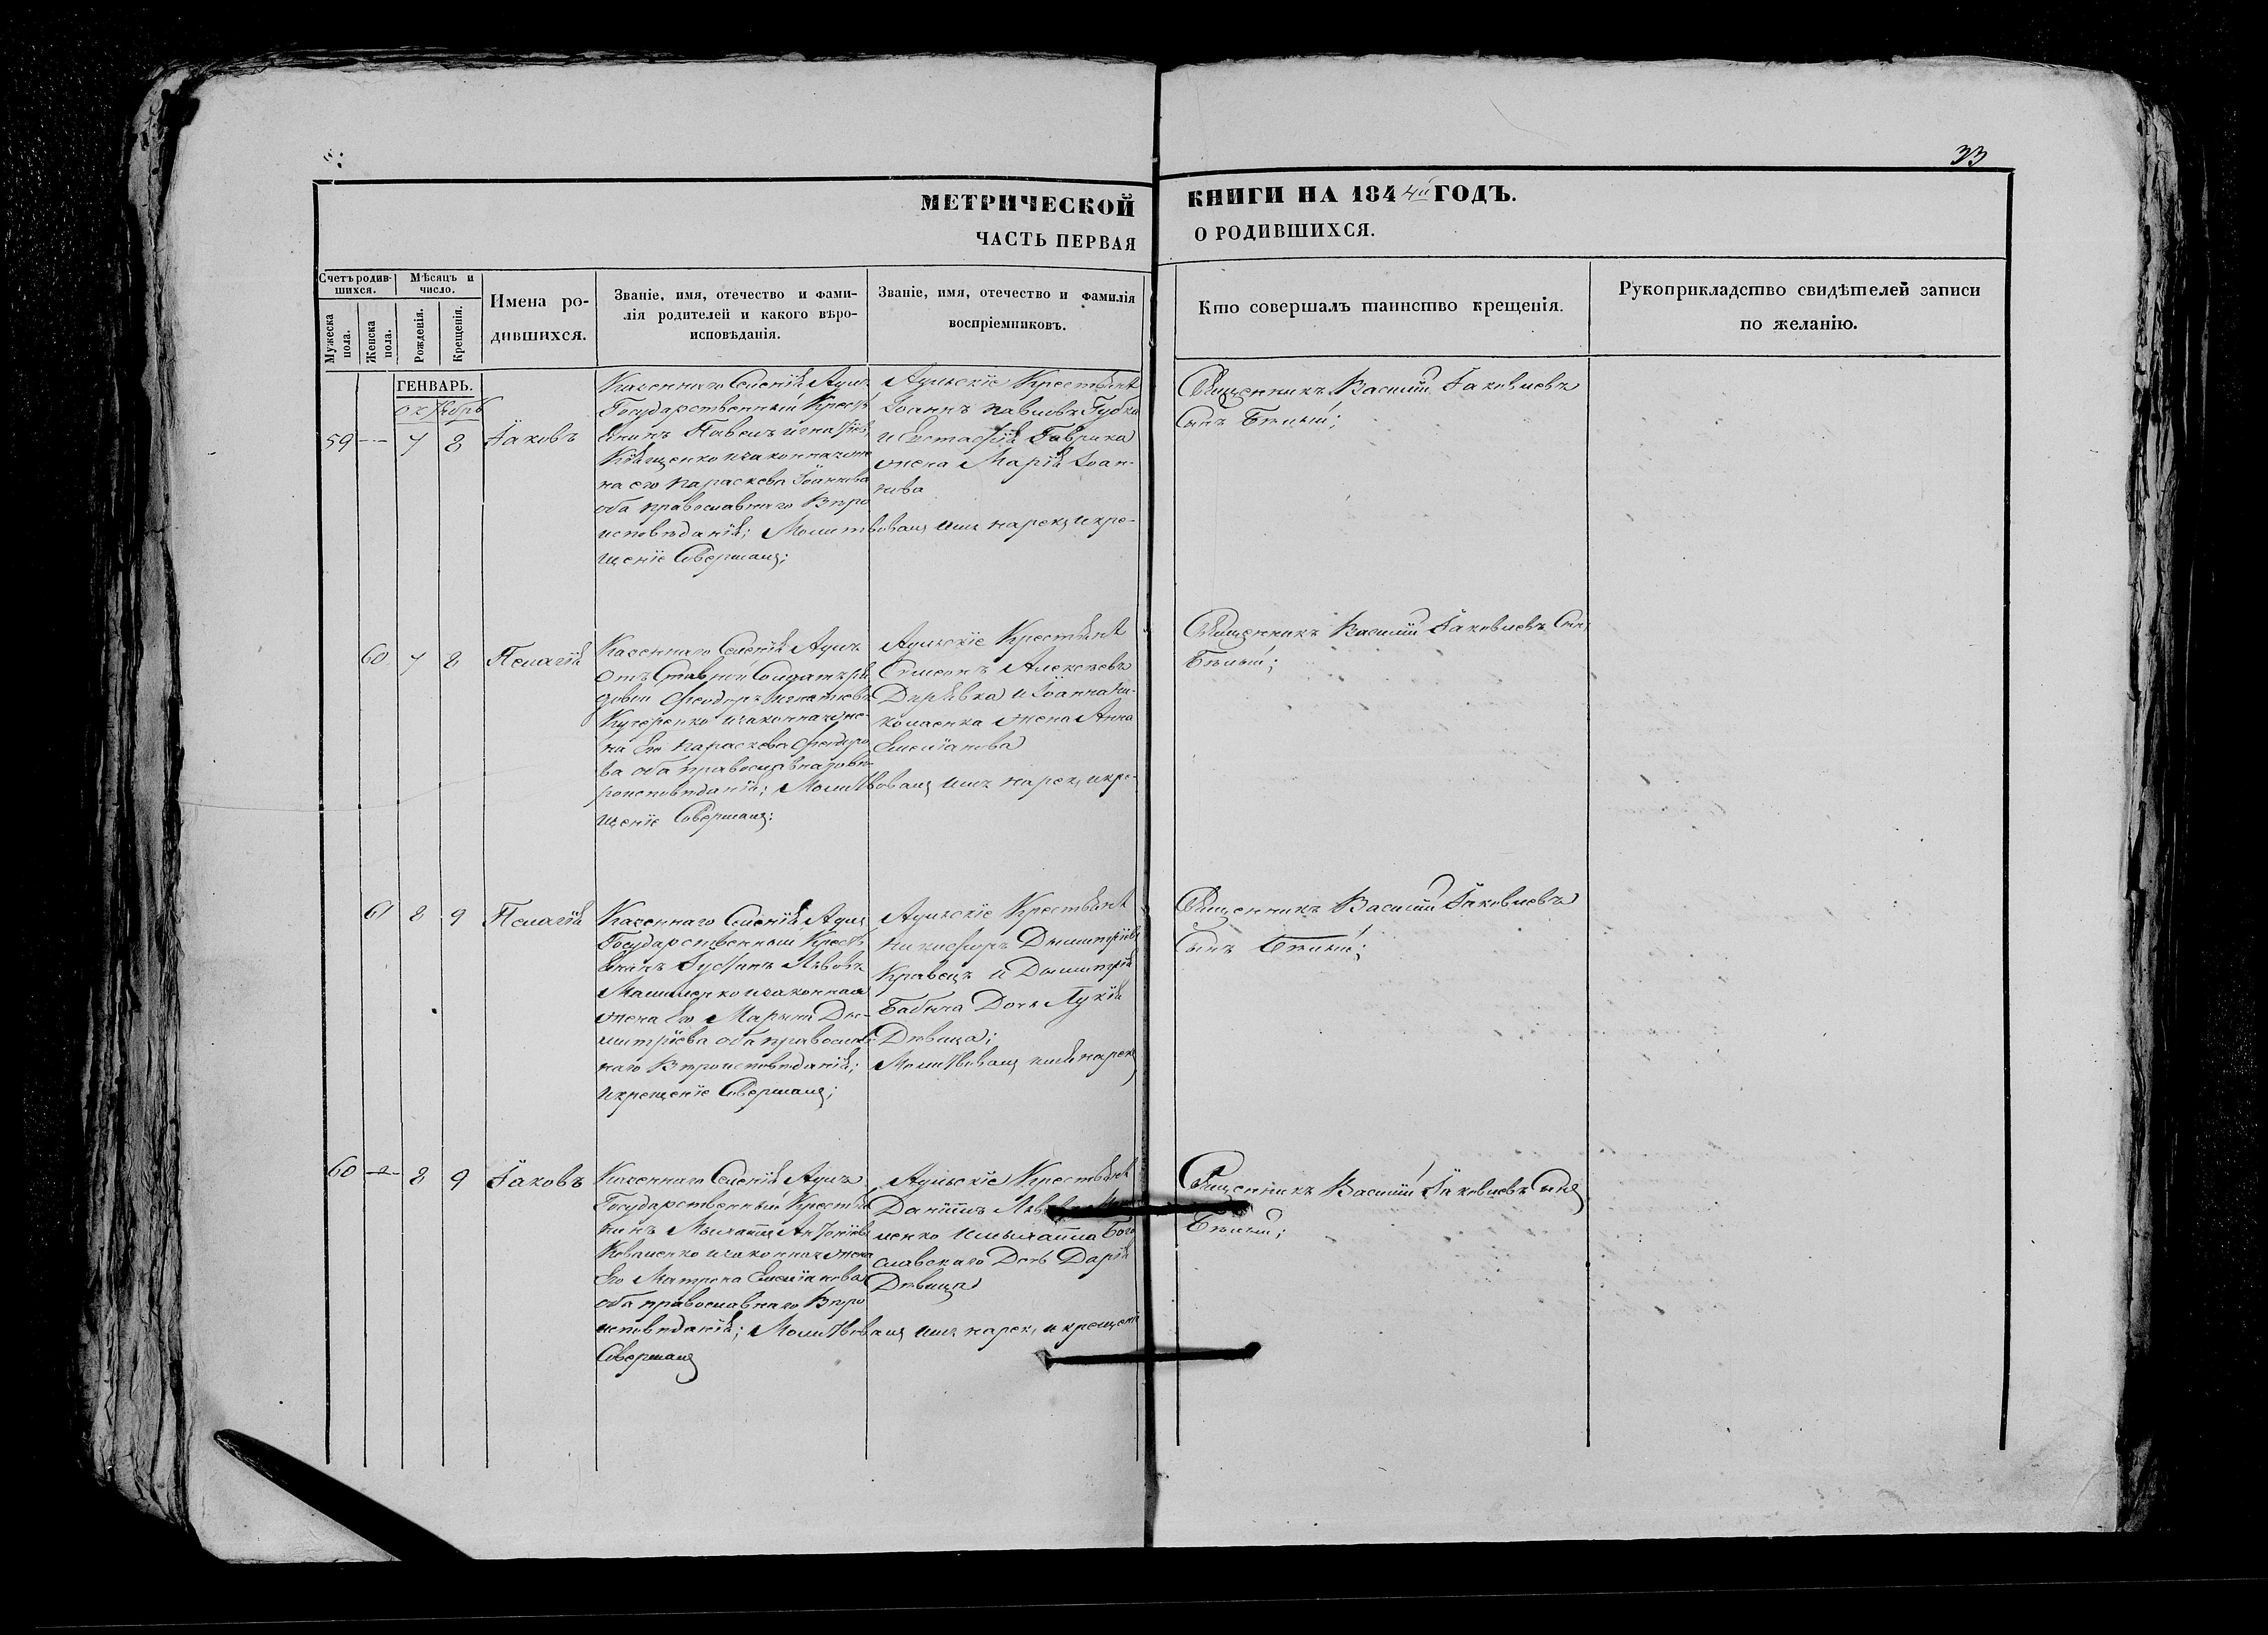 33
МЕТРИЧЕСКОЙ КНИГИ НА 1844й ГОДЪ.
ЧАСТЬ ПЕРВАЯ О РОДИВШИХСЯ.
Счетъ родившихся.
Мужеска пола.
Женска пола.
Мѣсяцъ и число.
Рожденія.
Крещенія.
Имена родившихся.
Званіе, имя, отечество и фамилія родителей и какого вѣроисповѣданія.
Званіе, имя, отечество и фамилія воспріемниковъ.
Кто совершалъ таинство крещенія.
Рукоприкладство свидѣтелей записи по желанію.
ГЕНВАРЬ.
октябрь
59 — 7 8 Іаковъ
Казеннаго Селенія Ауль
Государственный Крестя
нинъ Павелъ Игнатіевъ
законная же
на его Параскева Іоаннова
оба православнаго Вѣро
исповѣданія; Молитвовалъ имя нарекъ и кре-
щеніе Совершалъ;
Аульскіе Крестьяне
Іоаннъ Павловъ Губка
и Евстафія Гаврика
жена Марія Іоан-
нова
Священникъ Василій Іаковлевъ
Сынъ Бѣлый;
60 7 8 Пелагія
Казеннаго Селенія Ауль
Отъ Ставной Солдатъ ря
довой Феодоръ Игнатіевъ
Кучеренко и законная же-
на Его Параскева Феодоро
ва оба православнаго вѣ-
роисповѣданія; Молитвовалъ имя нарек, и кре-
щеніе Совершалъ;
Аульскіе Крестьяне
Симеонъ Алексѣевъ
и Іоанна Ни-
колаенка жена Анна
Емеліанова
Священникъ Василій Іаковлевъ Сын,
Бѣлый;
61 8 9 Пелагія
Казеннаго Селенія Ауль
Государственный Крестя
нинъ Іустинъ Львовъ
законная
жена Его Марѳа Ди-
митріева оба православ
наго Вѣроисповѣданія;
и крещеніе Совершалъ;
Аульскіе Крестьяне
Никифоръ Димитріевъ
Кравецъ и Димитрія
Бабича Дочь Лукія
Дѣвица;
Молитвовалъ имя нарекъ
Священникъ Василій Іаковлевъ
Сынъ Бѣлый;
60 — 8 9 Іаковъ
Казеннаго Селенія Ауль
Государственный Крестья
нинъ Михаилъ Антоніевъ
Коваленко и законная жена
Его Матрона Емеліанова
оба православнаго Вѣро
исповѣданія; Молитвовалъ имя нарек, и крещеніе
Совершалъ
Аульскіе Крестьяне
Даніилъ
ленко и Михаила Бого
славскаго Дочь Дарія
Дѣвица
Священникъ Василій Іаковлевъ Сынъ
Бѣлый;